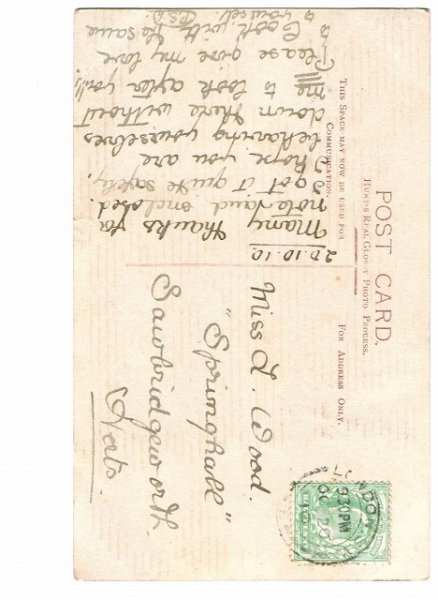 POST CARD.
HUNT'S REAL GLOSSY PHOTO PROCESS.
THIS SPACE MAY NOW BE USED FOR
COMMUNICATION.
FOR ADDRESS ONLY.
20.10.10.
Many thanks for
note and enclosed.
I got it quite safely.
I hope you are
behaving yourselves
down there without
me to look after you!!
Please give my love
to Cook, with the same
to yourself.
Miss L. Wood.
"Springhall"
Sawbridgeworth.
Herts.
LONDON
9.30PM
OC 20